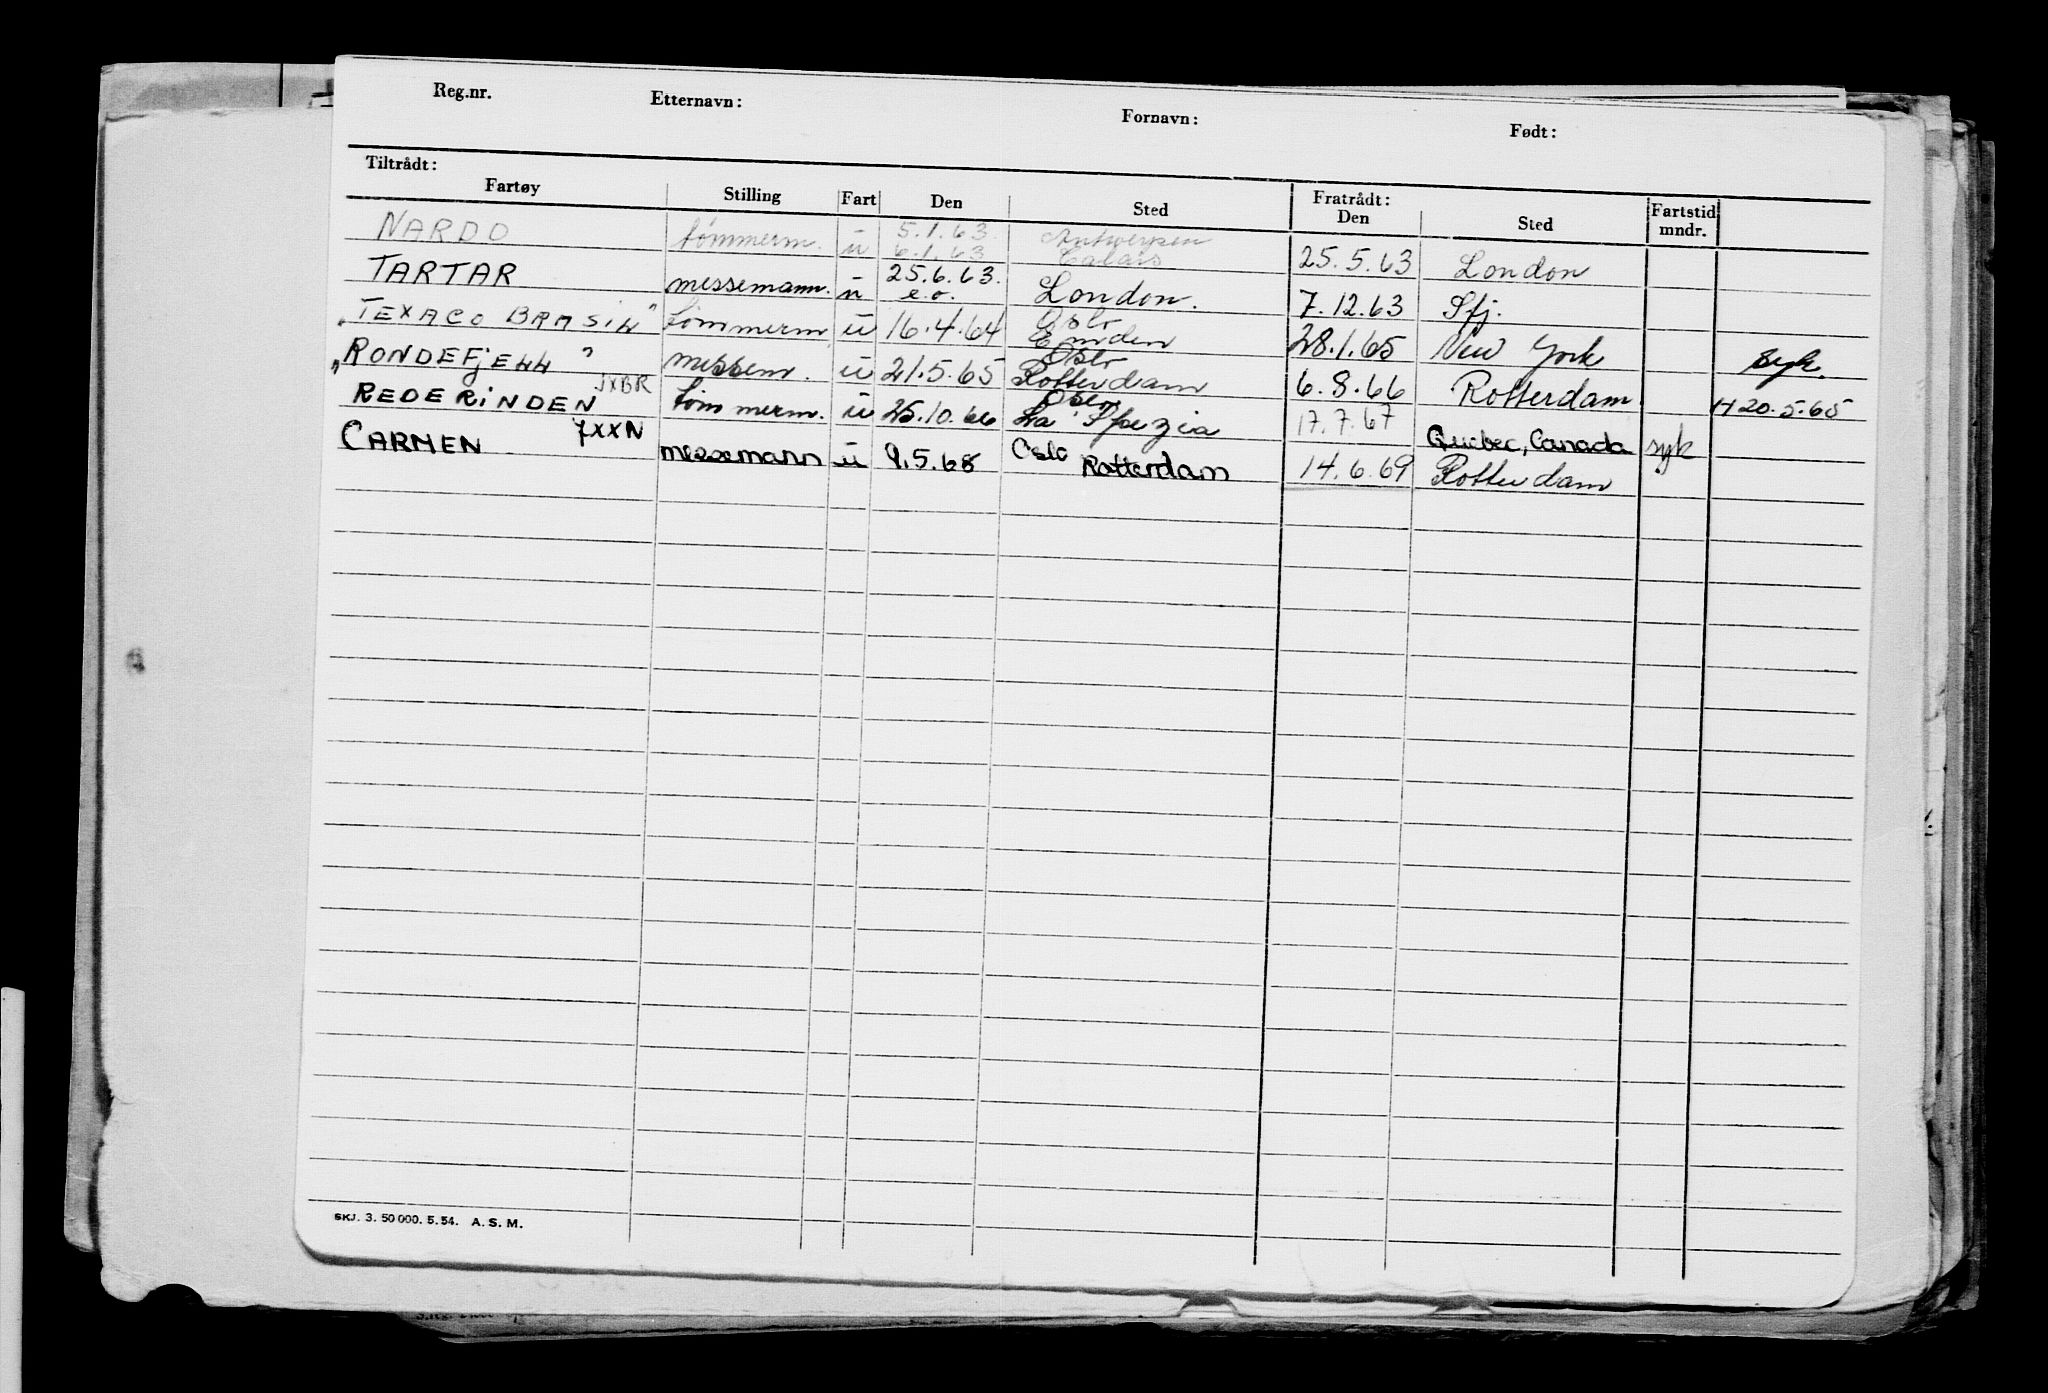 Reg.nr. Etternavn: Fornavn: Født:
Tiltrådt:
Fartøy Stilling Fart Den Sted Fratrådt: Den Sted Fartstid mndr.
NARDO tømmerm. u 5.1.63. Antwerpen
u 6.1.63 Calais 25.5.63 London
TARTAR messemann. u 25.6.63. e.o. London. 7.12.63 Sfj.
"TEXACO BRASIL" tømmerm u 16.4.64 Oslo Emden 28.1.65 New York syk.
"RONDEFJELL" messem. u 21.5.65 Oslo Rotterdam 6.8.66 Rotterdam H 20.5.65
REDERINDEN JXBR tømmerm. u 25.10.66 Oslo La Spezia 17.7.67 Quebec, Canada syk
CARMEN JXXN messemann u 9.5.68 Oslo Rotterdam 14.6.69 Rotterdam
SKJ. 3. 50 000. 5. 54. A. S. M.